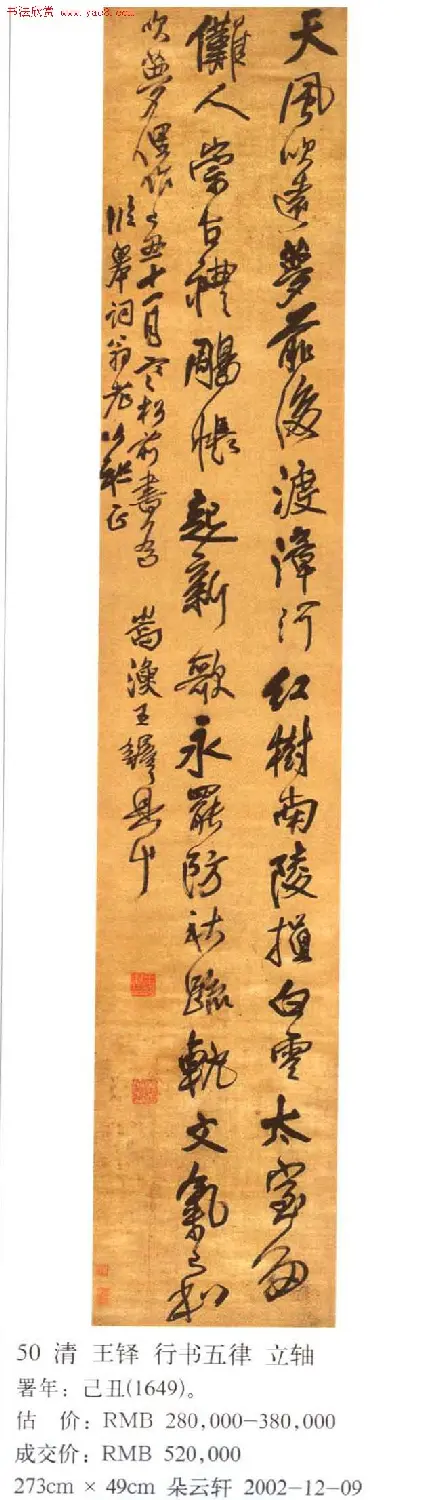 书法欣赏
www.yac8.com
天風吹遠夢前後渡漳河紅樹南陵損白雲太室多
儺人崇古禮鵰悵起新歌永罷防秋蹤軌文氣已和
吹夢偶作己丑十一月 松前書為
詞翁老 正
嵩渙王鐸具艸
50 清 王铎 行书五律 立轴
署年：己丑(1649)。
估 价：RMB 280,000-380,000
成交价：RMB 520,000
273cm × 49cm 朵云轩 2002-12-09